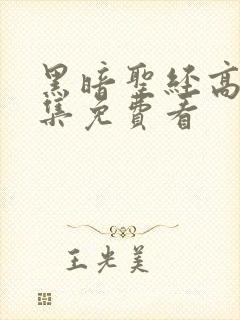 黑暗聖經高
集免費看
王光美